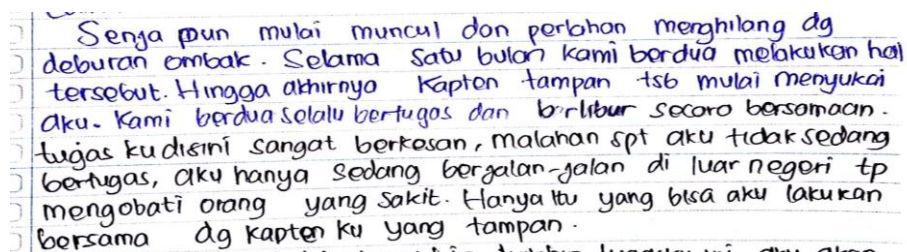 Senja pun mulai muncul dan perlahan menghilang dg
deburan ombak. Selama satu bulan kami berdua melakukan hal
tersebut. Hingga akhirnya kapten tampan tsb mulai menyukai
aku. Kami berdua selalu bertugas dan berlibur secara bersamaan.
tugas ku disini sangat berkesan, malahan spt aku tidak sedang
bertugas, aku hanya sedang berjalan-jalan di luar negeri tp
mengobati orang yang sakit. Hanya itu yang bisa aku lakukan
bersama dg kapten ku yang tampan.